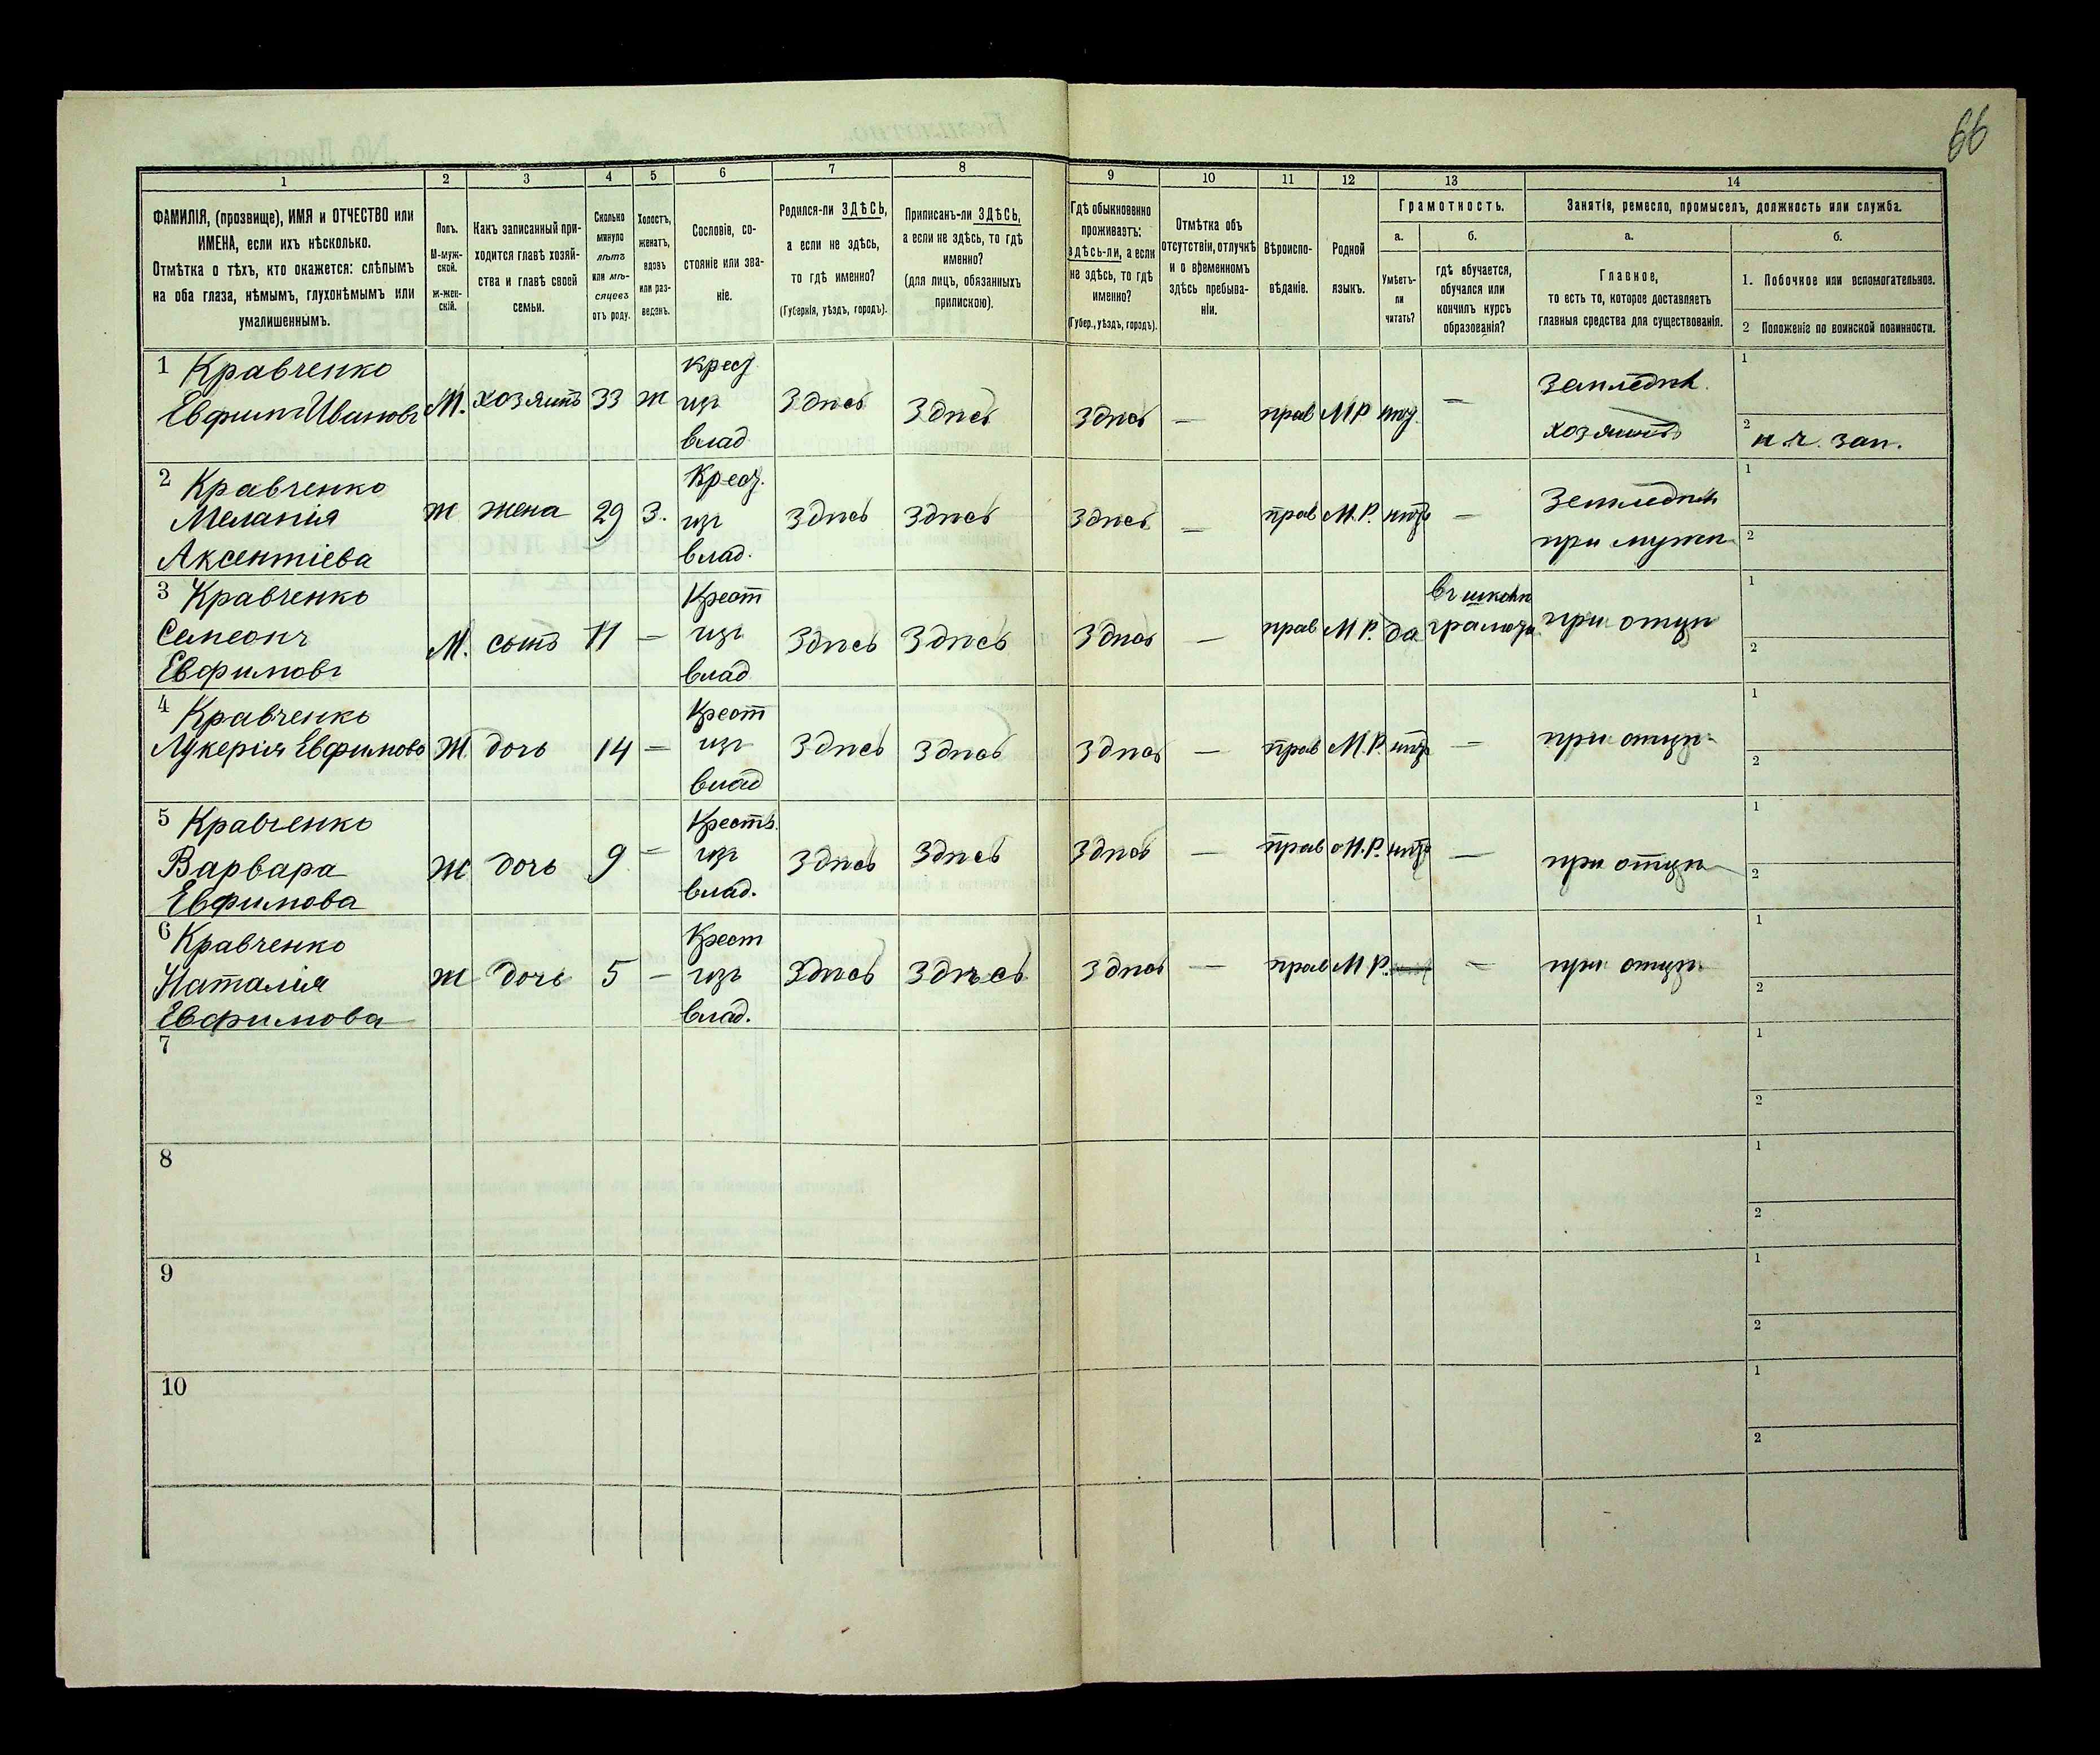 66
1 2 3 4 5 6 7 8 9 10 11 12 13 14
ФАМИЛІЯ, (прозвище), ИМЯ и ОТЧЕСТВО или
ИМЕНА, если ихъ нѣсколько.
Отмѣтка о тѣхъ, кто окажется: слѣпымъ
на оба глаза, нѣмымъ, глухонѣмымъ или
умалишеннымъ.
Полъ.
М-муж-
ской.
Ж-жен-
скій.
Какъ записанный при-
ходится главѣ хозяй-
ства и главѣ своей
семьи.
Сколько
минуло
лѣтъ
или мѣ-
сяцевъ
отъ роду.
Холостъ,
женатъ,
вдовъ
или раз-
веденъ.
Сословіе, со-
стояніе или зва-
ніе.
Родился-ли ЗДѢСЬ,
а если не здѣсь,
то гдѣ именно?
(Губернія, уѣздъ, городъ).
Приписанъ-ли ЗДѢСЬ,
а если не здѣсь, то гдѣ
именно?
(для лицъ, обязанныхъ
припискою).
Гдѣ обыкновенно
проживаетъ:
здѣсь-ли, а если
не здѣсь, то гдѣ
именно?
(Губер., уѣздъ, городъ).
Отмѣтка объ
отсутствіи, отлучкѣ
и о временномъ
здѣсь пребыва-
ніи.
Вѣроиспо-
вѣданіе.
Родной
языкъ.
Грамотность.
а.
Умѣетъ-
ли
читать?
б.
гдѣ обучается,
обучался или
кончилъ курсъ
образованія?
Занятіе, ремесло, промыселъ, должность или служба.
а.
Главное,
то есть то, которое доставляетъ
главныя средства для существованія.
б.
1. Побочное или вспомогательное.
2 Положеніе по воинской повинности.
1 Кравченко
Евфимъ Ивановъ М. хозяинъ 33 ж
крест.
изъ
влад
Здѣсь Здѣсь Здѣсь — прав М.Р. нѣт. —
Земледѣл.
хозяинъ
1
2 н.ч. зап.
2 Кравченко
Меланія
Аксентіева
Ж жена 29 З.
Крест.
изъ
влад.
Здѣсь Здѣсь Здѣсь — прав М.Р. нѣтъ —
Земледѣл
при мужѣ
1
2
3 Кравченко
Симеонъ
Евфимовъ
М. сынъ 11 —
Крест
изъ
влад
Здѣсь Здѣсь Здѣсь — прав М.Р. да
въ школѣ
грамоты
при отцѣ
1
2
4 Кравченко
Лукерія Евфимова Ж. дочь 14 —
Крест
изъ
влад
Здѣсь Здѣсь Здѣсь — прав М.Р. нѣтъ — при отцѣ
1
2
5 Кравченко
Варвара
Евфимова
Ж дочь 9 —
Крестъ.
изъ
влад.
Здѣсь Здѣсь Здѣсь — прав М.Р. нѣтъ — при отцѣ
1
2
6 Кравченко
Наталія
Евфимова
Ж дочь 5 —
Крест
изъ
влад.
Здѣсь Здѣсь Здѣсь — прав М.Р. — при отцѣ
1
2
7
1
2
8
1
2
9
1
2
10
1
2